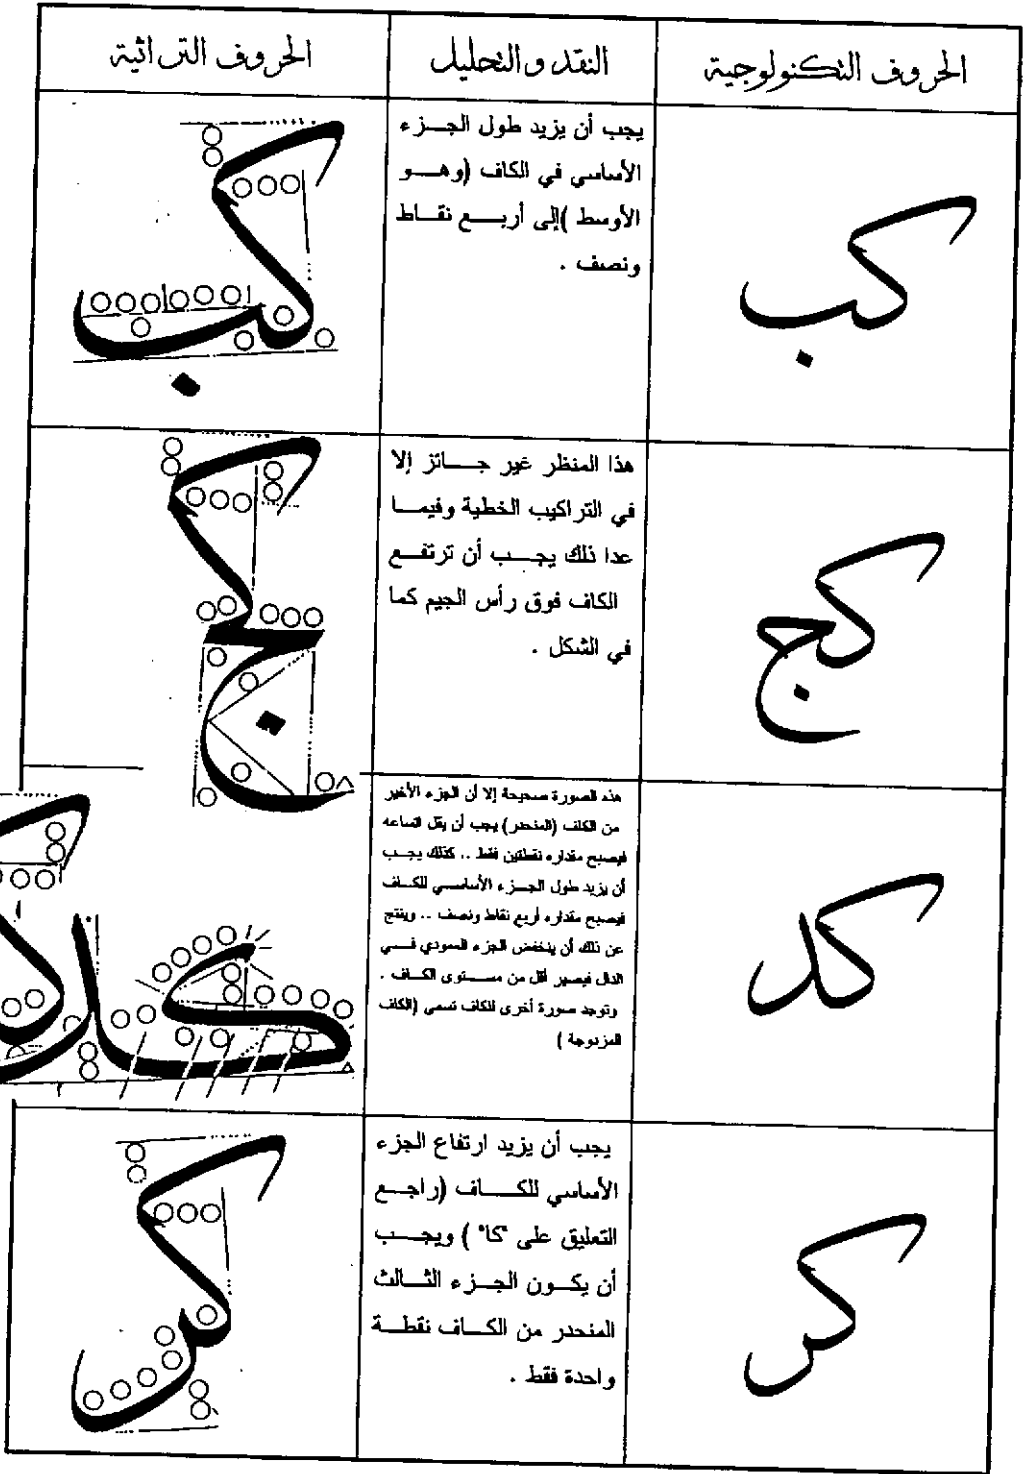 الحروف التكنولوجية
النقد والتحليل
الحروف التراثية
كب
يجب أن يزيد طول الجزء
الأساسي في الكاف (وهو
الأوسط )إلى أربع نقاط
ونصف .
كب
كج
هذا المنظر غير جائز إلا
في التراكيب الخطية وفيما
عدا ذلك يجب أن ترتفع
الكاف فوق رأس الجيم كما
في الشكل .
كج
كد
هذه الصورة صحيحة إلا أن الجزء الأخير
من الكاف (المنحدر) يجب أن يقل اتساعه
فيصبح مقداره نقطتين فقط .. كذلك يجب
أن يزيد طول الجزء الأساسي للكاف
فيصبح مقداره أربع نقاط ونصف .. وينتج
عن ذلك أن ينخفض الجزء العمودي في
الدال فيصير أقل من مستوى الكاف .
وتوجد صورة أخرى للكاف تسمى (الكاف
المزدوجة )
كد
كد
كر
يجب أن يزيد ارتفاع الجزء
الأساسي للكاف (راجع
التعليق على "كا" ) ويجب
أن يكون الجزء الثالث
المنحدر من الكاف نقطة
واحدة فقط .
كر